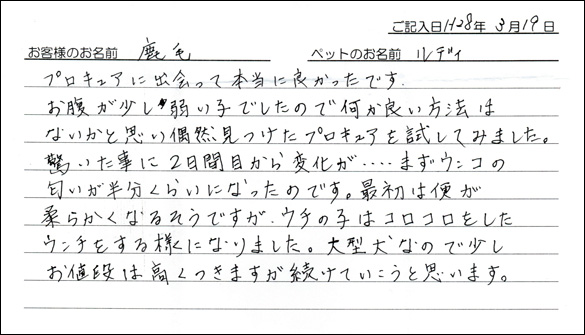 ご記入日H28年 3月19日
お客様のお名前 鹿毛 ペットのお名前 ルディ
プロキュアに出会って本当に良かったです.
お腹が少し弱い子でしたので何か良い方法は
ないかと思い偶然見つけたプロキュアを試してみました。
驚いた事に2日間目から変化が‥‥まずウンコの
匂いが半分くらいになったのです。最初は便が
柔らかくなるそうですが、ウチの子はコロコロをした
ウンチをする様になりました。大型犬なので少し
お値段は高くつきますが続けていこうと思います。